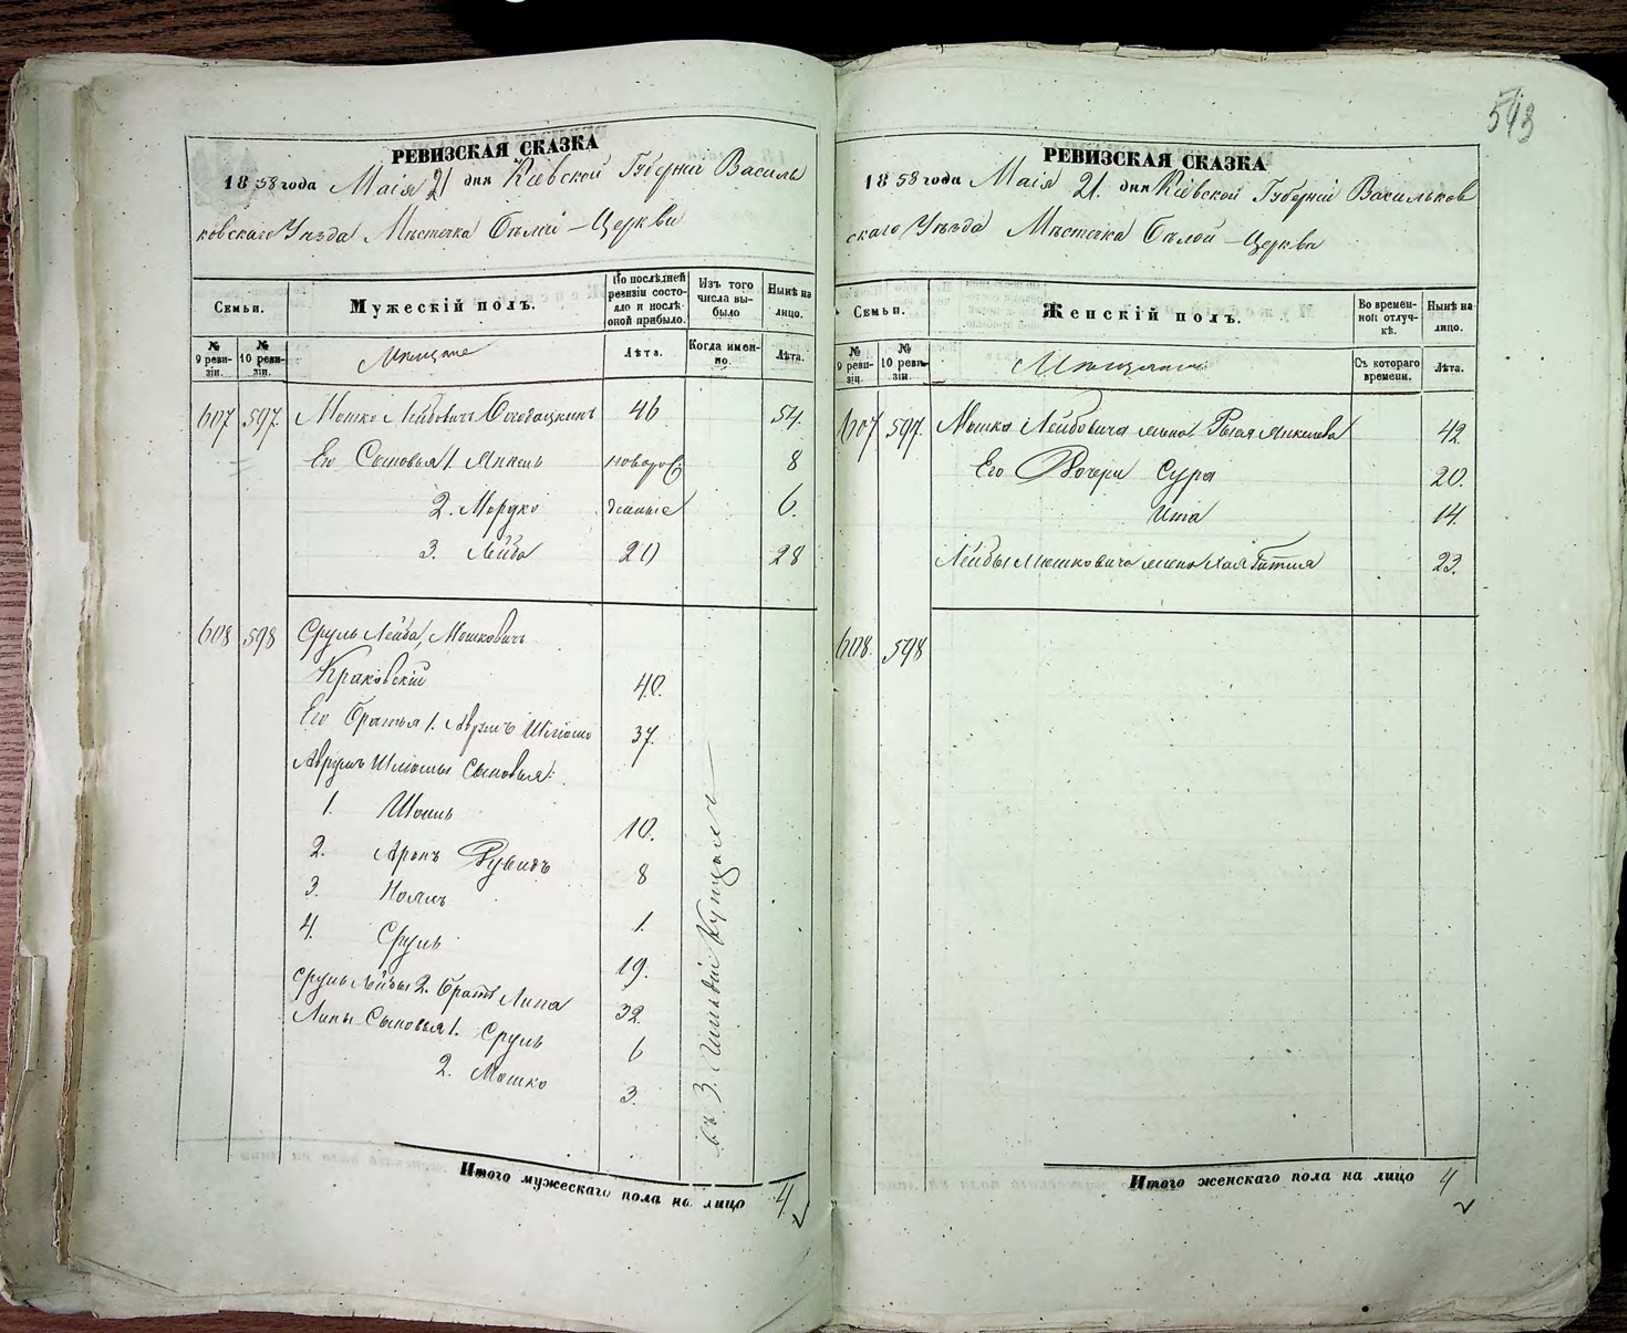 543
РЕВИЗСКАЯ СКАЗКА
1858 года Маія 21 дня Кіевской Губерніи Василь
ковскаго Уѣзда Мѣстечка Бѣлой-Церкви
Семьи.
Мужескій полъ.
По послѣдней ревизіи состояло и послѣ оной прибыло.
Изъ того числа выбыло
Нынѣ на лицо.
№ 9 ревизіи.
№ 10 ревизіи.
Мѣщане
Лѣта.
Когда именно.
Лѣта.
607 597. Мошко Лейбовичъ 46 54.
Его Сыновья 1. новорож 8
2. Мордко денные 6.
3. Лейба 20 28
608 598 Сруль Лейба, Мошковичъ
Краковскій 40.
Его Братья 1. Аврумъ Шліома 37.
Аврумъ Шліомы Сыновья:
1. 10.
2. Аронъ Дувидъ 8
3. 1.
4. Сруль 19.
Сруль Лейбы 2. Братъ Липа 32.
Липы Сыновья 1. Сруль 6
2. Мошко 3.
въ 3. Гильдіи
Итого мужескаго пола на лицо 4
РЕВИЗСКАЯ СКАЗКА
1858 года Маія 21. дня Кіевской Губерніи Васильков
скаго Уѣзда Мѣстечка Бѣлой-Церкви
Семьи.
Женскій полъ.
Во временной отлучкѣ.
Нынѣ на лицо.
№ 9 ревизіи.
№ 10 ревизіи.
Съ котораго времени.
Лѣта.
607 597. Мошка Лейбовича жена 42.
Его Дочери Сура 20.
Ита 14.
Лейбы Мошковича жена Хая Гитля 23.
608. 598
Итого женскаго пола на лицо 4